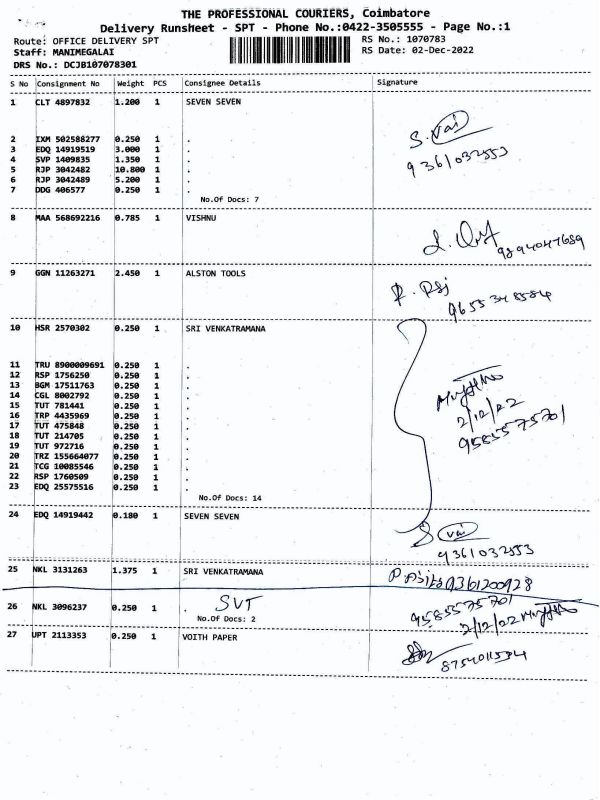 THE PROFESSIONAL COURIERS, Coimbatore
Delivery Runsheet - SPT - Phone No.:0422-3505555 - Page No.:1
Route: OFFICE DELIVERY SPT RS No.: 1070783
Staff: MANIMEGALAI RS Date: 02-Dec-2022
DRS No.: DCJB107078301
S No Consignment No Weight PCS Consignee Details Signature
1 CLT 4897832 1.200 1 SEVEN SEVEN
S. Vai
2 IXM 502588277 0.250 1 .
3 EDQ 14919519 3.000 1 .
9361032553
4 SVP 1409835 1.350 1 .
5 RJP 3042482 10.800 1 .
6 RJP 3042489 5.200 1 .
7 DDG 406577 0.250 1 .
No.Of Docs: 7
8 MAA 568692216 0.785 1 VISHNU
9894047689
9 GGN 11263271 2.450 1 ALSTON TOOLS
9655348584
10 HSR 2570302 0.250 1 SRI VENKATRAMANA
11 TRU 8900009691 0.250 1 .
12 RSP 1756250 0.250 1 .
13 BGM 17511763 0.250 1 .
14 CGL 8002792 0.250 1 .
15 TUT 781441 0.250 1 .
2/12/22
16 TRP 4435969 0.250 1 .
17 TUT 475848 0.250 1 .
9585575701
18 TUT 214705 0.250 1 .
19 TUT 972716 0.250 1 .
20 TRZ 155664077 0.250 1 .
21 TCG 10085546 0.250 1 .
22 RSP 1760509 0.250 1 .
23 EDQ 25575516 0.250 1 .
No.Of Docs: 14
24 EDQ 14919442 0.180 1 SEVEN SEVEN
S vai
9361032553
25 NKL 3131263 1.375 1 SRI VENKATRAMANA
9361200928
26 NKL 3096237 0.250 1 . SVT
9585575701
No.Of Docs: 2
2/12/22
27 UPT 2113353 0.250 1 VOITH PAPER
8754011594